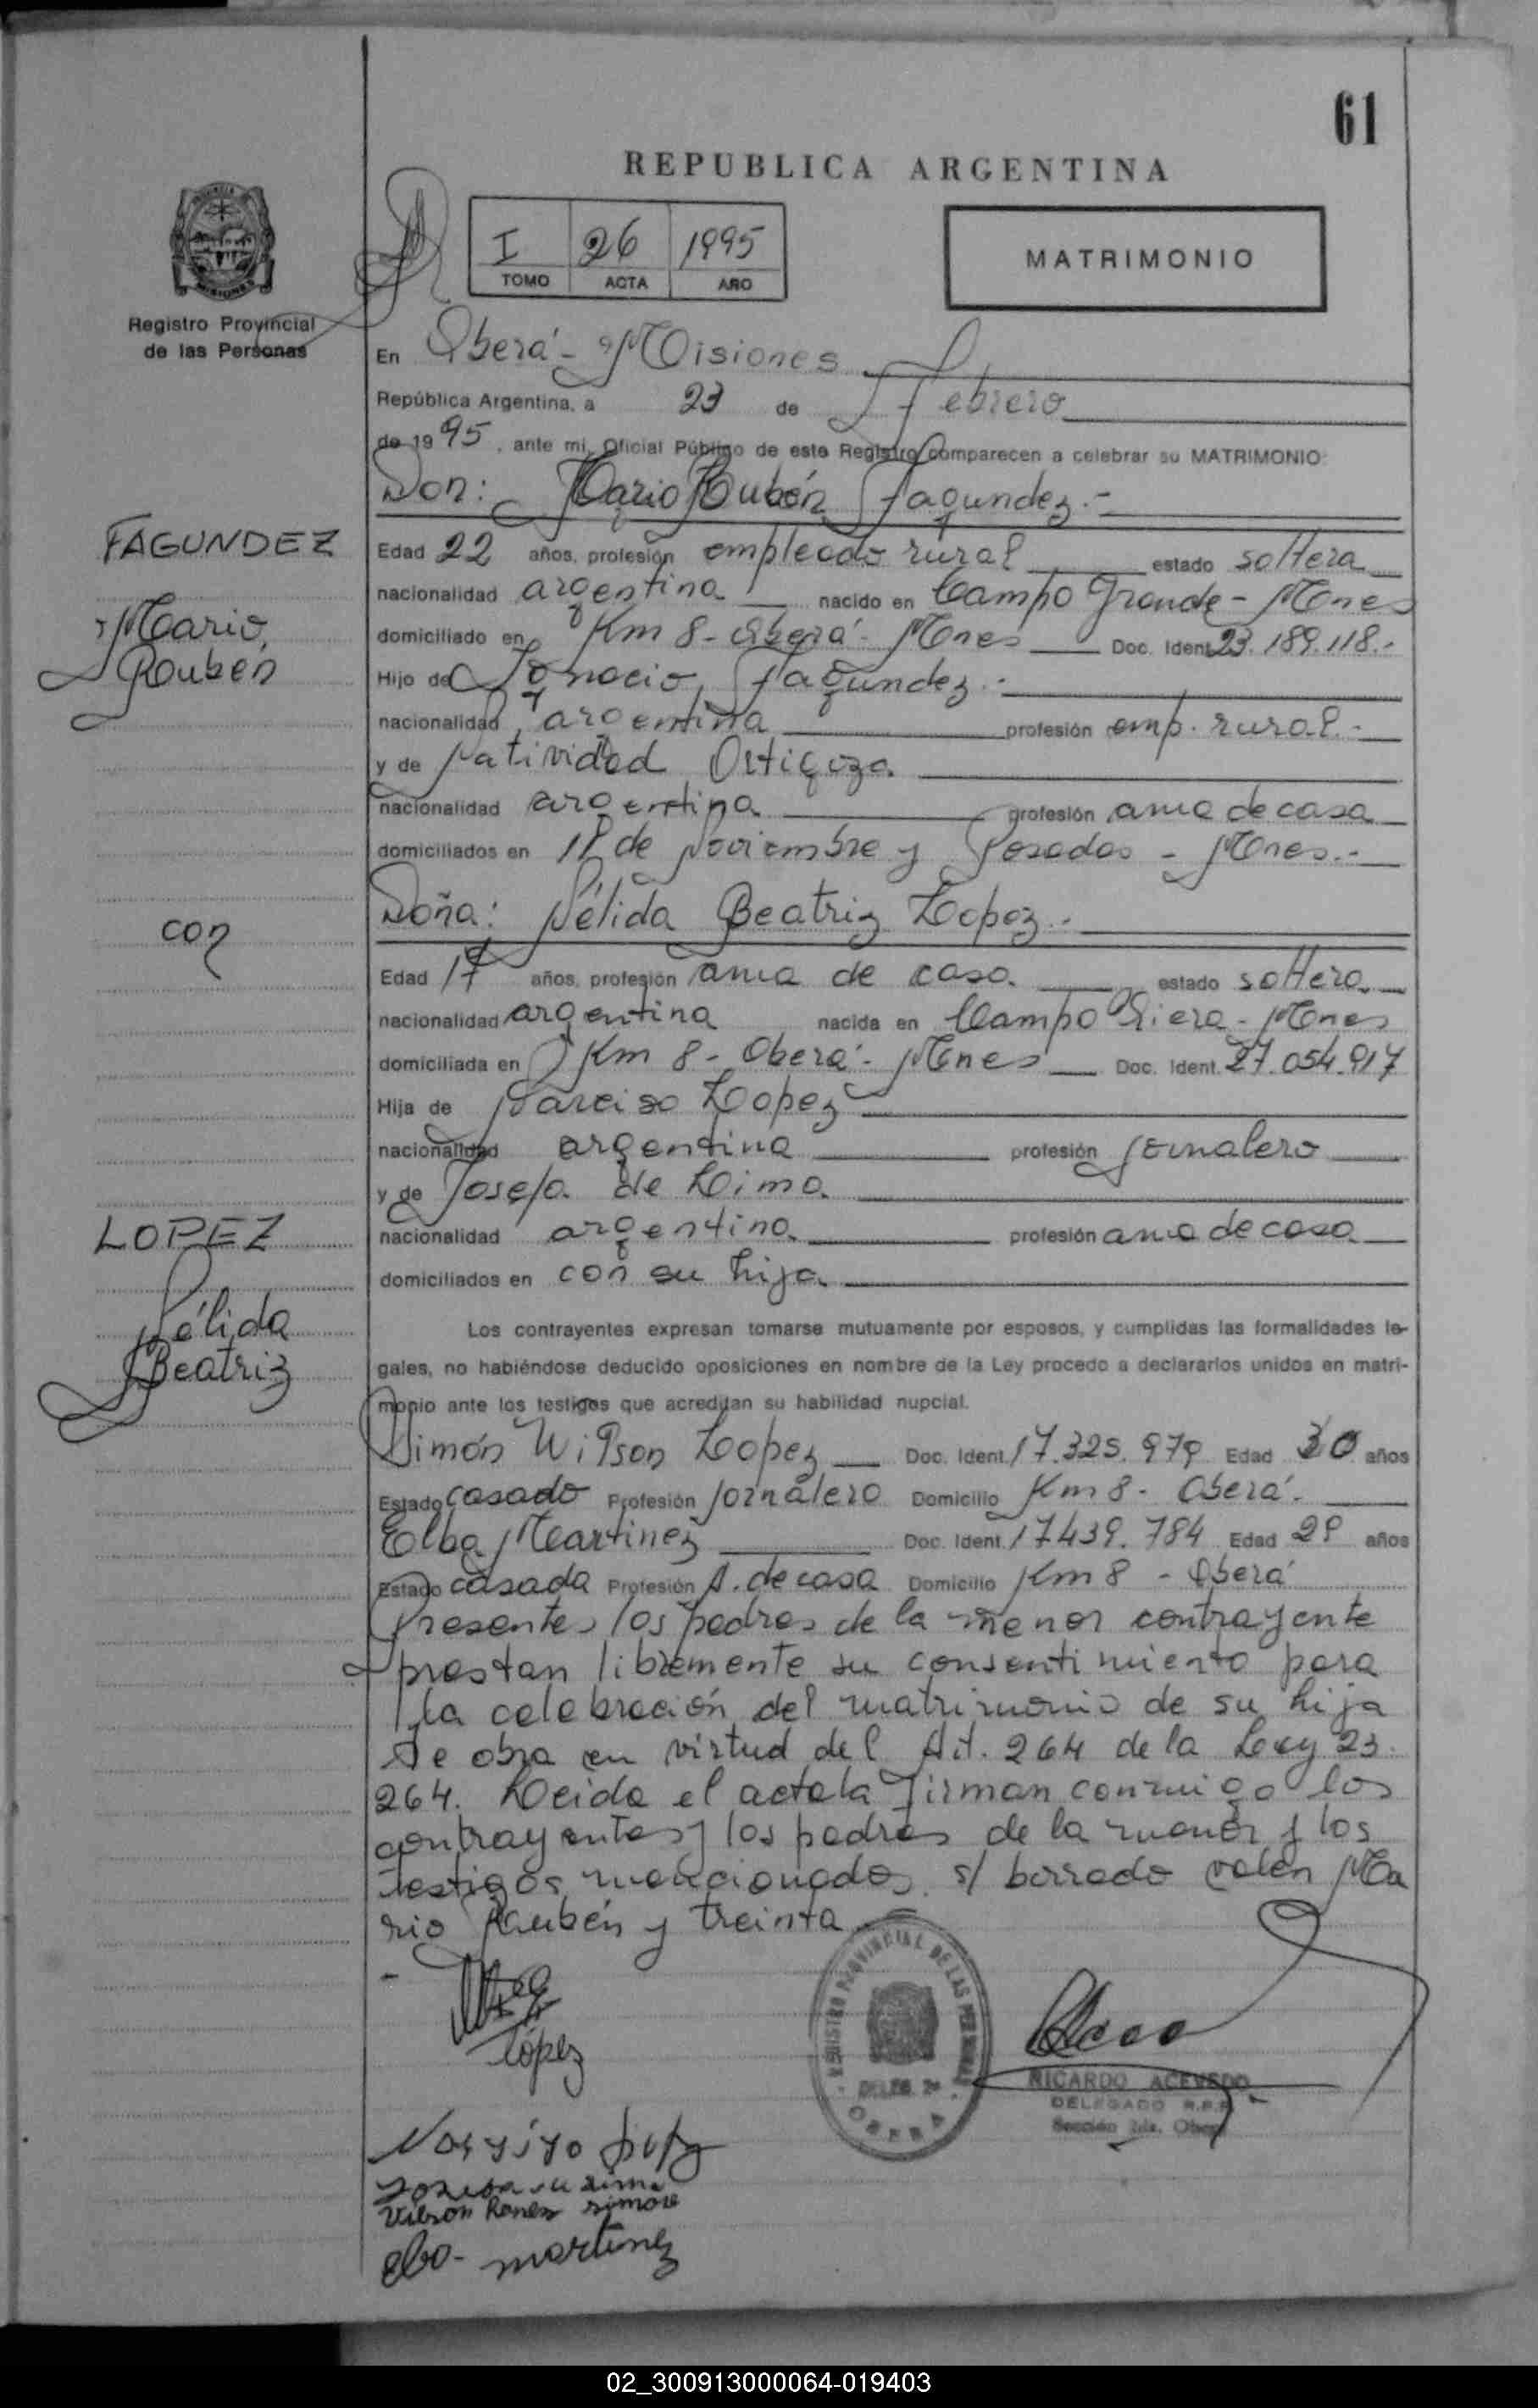 61
REPUBLICA ARGENTINA
I 26 1995
TOMO ACTA AÑO
MATRIMONIO
Registro Provincial
de las Personas
En Oberá - Misiones
República Argentina, a 23 de Febrero
de 1995, ante mi, Oficial Público de este Registro comparecen a celebrar su MATRIMONIO:
Don: Mario Rubén Fagundez.-
FAGUNDEZ
Mario
Rubén
Edad 22 años, profesión empleado rural estado soltera
nacionalidad argentina nacido en Campo Grande - Mnes
domiciliado en Km 8 - Oberá - Mnes Doc. Ident. 23.189.118.-
Hijo de Ignacio Fagundez.-
nacionalidad argentina profesión emp. rural.-
y de Natividad Ortigoza
nacionalidad argentina profesión ama de casa
domiciliados en de Noviembre y Posadas - Mnes.-
con
Doña: Nélida Beatriz Lopez.-
Edad 17 años, profesión ama de casa estado soltera
nacionalidad argentina nacida en Campo Viera - Mnes
domiciliada en Km 8 - Oberá - Mnes Doc. Ident. 27.054.917
Hija de Narciso Lopez
nacionalidad argentina profesión jornalero
y de Josefa de Lima
nacionalidad argentina profesión ama de casa
domiciliados en con su hija
LOPEZ
Nélida
Beatriz
Los contrayentes expresan tomarse mutuamente por esposos, y cumplidas las formalidades le-
gales, no habiéndose deducido oposiciones en nombre de la Ley procedo a declararlos unidos en matri-
monio ante los testigos que acreditan su habilidad nupcial.
Simón Wilson Lopez Doc. Ident. 17.325.979 Edad 30 años
Estado casado Profesión jornalero Domicilio Km 8 - Oberá.
Elba Martinez Doc. Ident. 17439.784 Edad 29 años
Estado casada Profesión A. de casa Domicilio Km 8 - Oberá
Presentes los padres de la menor contrayente
prestan libremente su consentimiento para
la celebración del matrimonio de su hija
Se obra en virtud del Art. 264 de la Ley 23.
264. Leida el acta la firman conmigo los
contrayentes y los padres de la menor y los
testigos mencionados. s/ borrado valen Ma
rio Rubén y treinta
López
REGISTRO PROVINCIAL DE LAS PERSONAS
OBERA
RICARDO ACEVEDO
DELEGADO R.P.P.
Sección 2da. Oberá
Vilson
martinez
02_300913000064-019403